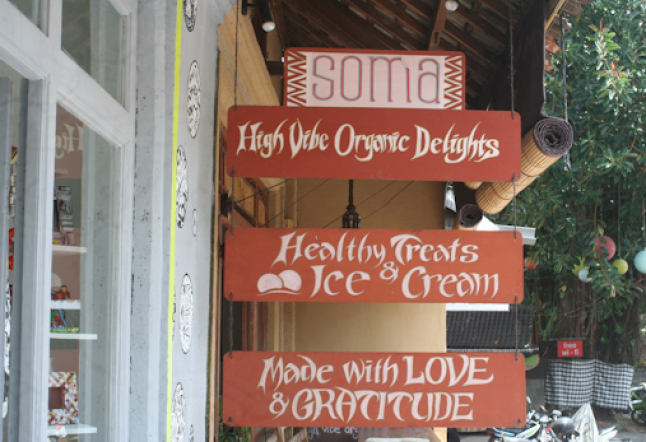 soma
High Vibe Organic Delights
Healthy Treats
& Ice Cream
Made with LOVE
& GRATITUDE